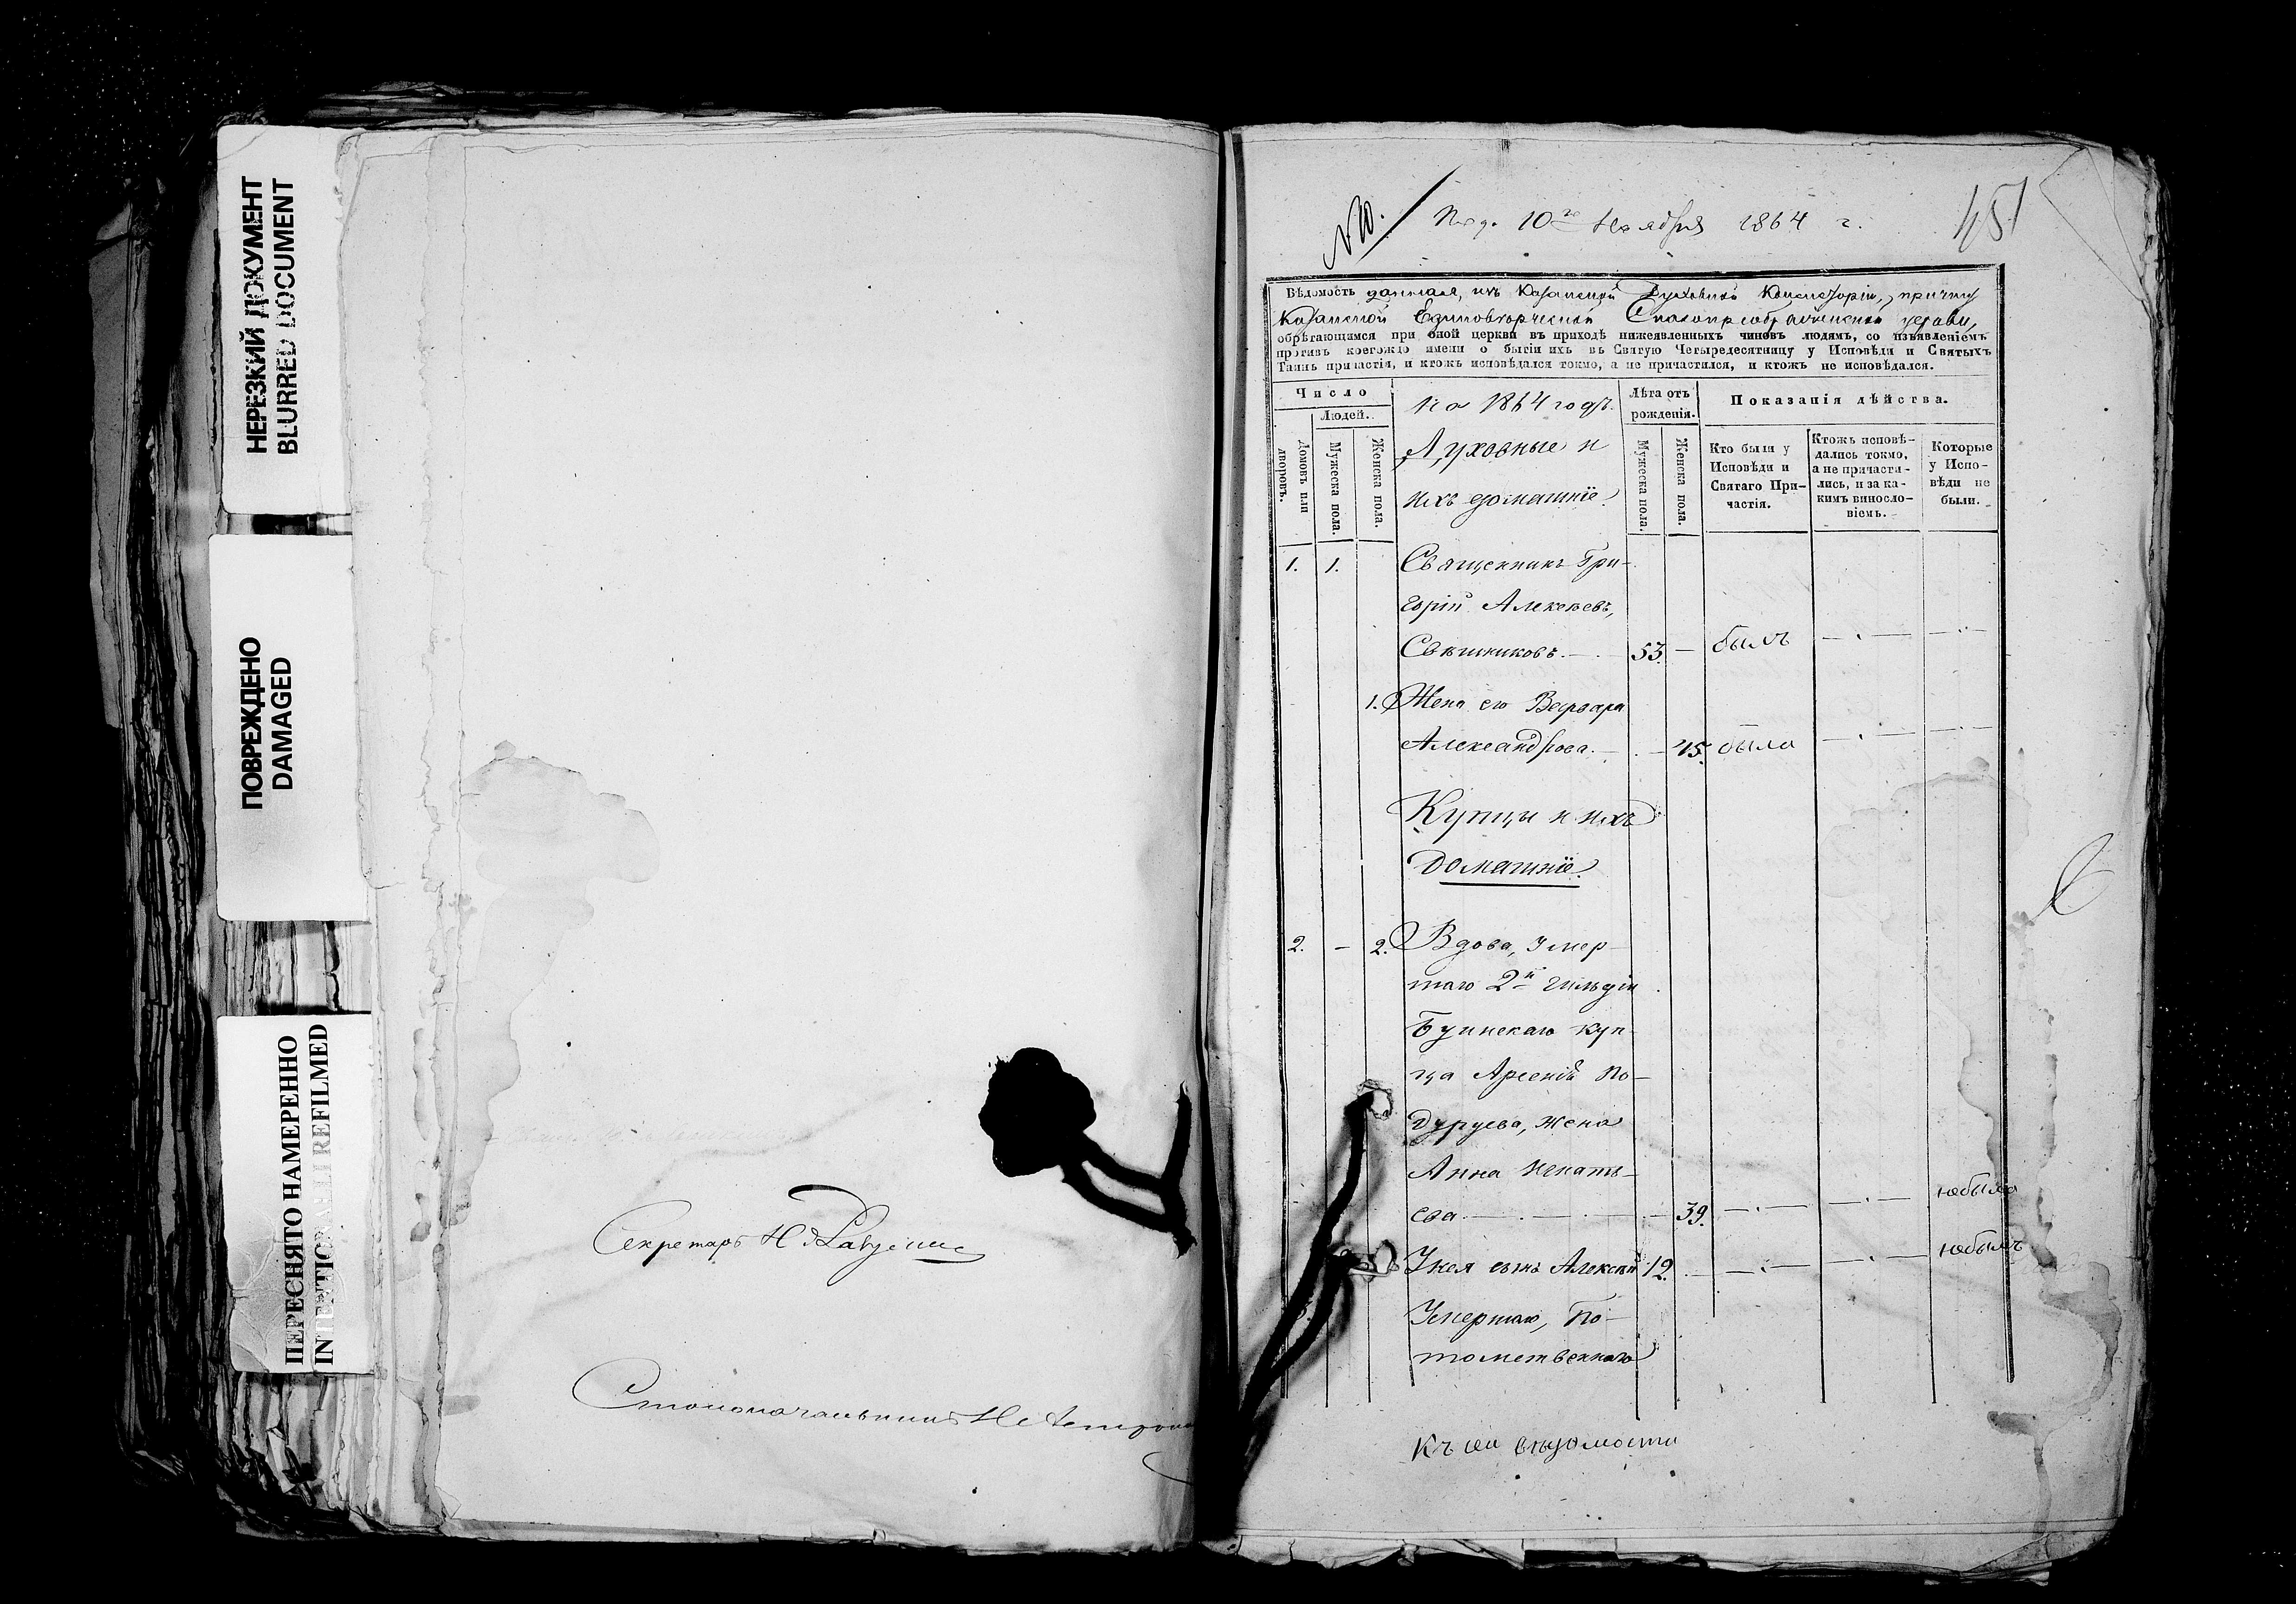 НЕРЕЗКИЙ ДОКУМЕНТ
BLURRED DOCUMENT
ПОВРЕЖДЕНО
DAMAGED
ПЕРЕСНЯТО НАМЕРЕННО
INTENTIONALLY REFILMED
Секретарь Н
Столоначальникъ
№ 20.
10го Ноября 1864 г.
451
Вѣдомость данная, изъ Казанской Духовной Консисторіи, причту
Казанской Единовѣрческой Спасопреображенской церкви,
обрѣтающимся при оной церкви въ приходѣ нижеявленныхъ чиновъ людямъ, со изъявленіемъ
противъ коегождо имени о бытіи ихъ въ Святую Четыредесятницу у Исповѣди и Святыхъ
Таинъ причастія, и ктожъ исповѣдался токмо, а не причастился, и ктожъ не исповѣдался.
Число
Людей.
Домовъ или дворовъ.
Мужеска пола.
Женска пола.
На 1864 годъ.
Духовные и
ихъ домашніе.
Лѣта отъ рожденія.
Мужеска пола.
Женска пола.
Показанія дѣйства.
Кто были у Исповѣди и Святаго Причастія.
Ктожъ исповѣдались токмо, а не причастились, и за какимъ винословіемъ.
Которые у Исповѣди не были.
1. 1. Священникъ Гри-
горій Алексѣевъ,
Свѣшниковъ. 53. былъ
1. Жена его Варвара
Александрова. 45. была
Купцы и ихъ
домашніе.
2. - 2. Вдова, умер-
шаго 2й гильдіи
Буинскаго куп-
ца Арсенія По-
дуруева, жена
Анна Игнать-
ева 39. небыла
У нея сынъ Алексѣй 12. небылъ
Умершаго, По-
томственнаго
Къ сей вѣдомости